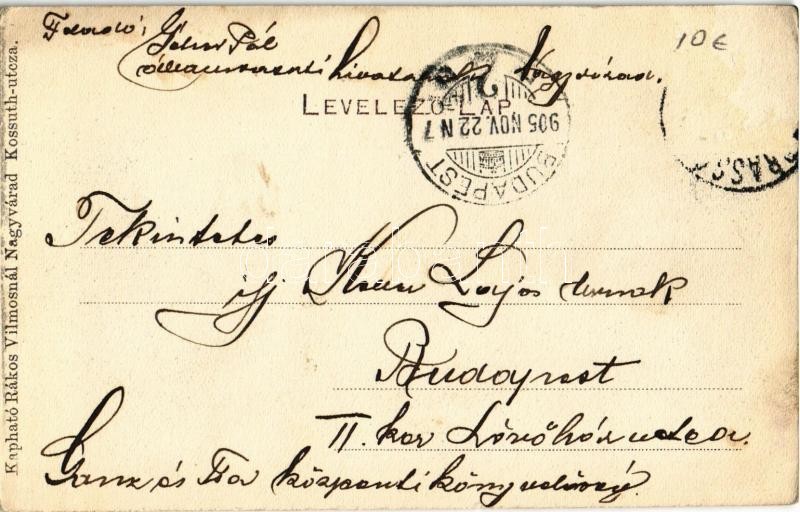 Feladó;
Pál
államvasuti hivatalnok Nagyvárad.
LEVELEZŐ-LAP
BUDAPEST
905 NOV. 22 N 7
10€
Tekintetes
ifj Lajos urnak
Budapest
II. ker Lövőház utca.
Ganz és Tsa központi könyvelőség.
Kapható Rákos Vilmosnál Nagyvárad Kossuth-utcza.